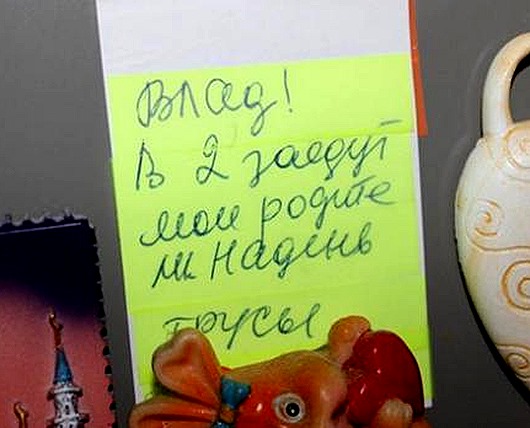 Влад!
В 2 заедут
мои родите
ли Надень
трусы